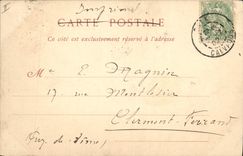 Imprimé
CARTE POSTALE
Ce côté est exclusivement réservé à l'adresse
M E. Magnier
17 rue Montlosier
Clermont-Ferrand
Puy-de-Dôme